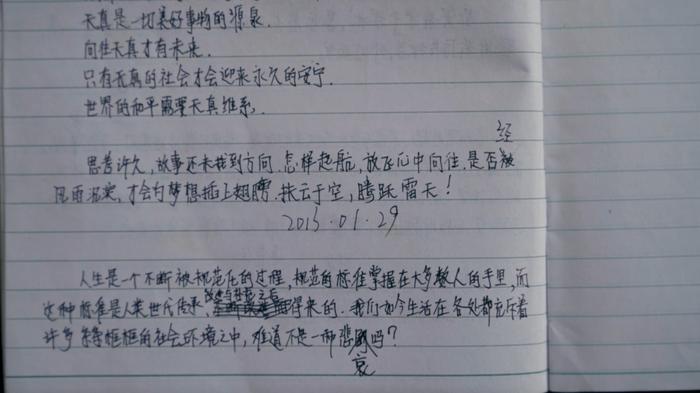 天真是一切美好事物的源泉.
向往天真才有未来.
只有天真的社会才会迎来永久的安宁.
世界的和平需要天真维系.
经
思考许久,故事还未找到方向.怎样起航,放飞心中向往.是否被
风雨洗礼,才会为梦想插上翅膀.扶云于空,腾跃雷天!
2013.01.29
人生是一个不断被规范化的过程,规范的标准掌握在大多数人的手里,而
改进与升华之后
这种标准是人类世代传承、得来的.我们如今生活在各处都充斥着
许多条条框框的社会环境之中,难道不是一种悲哀吗?